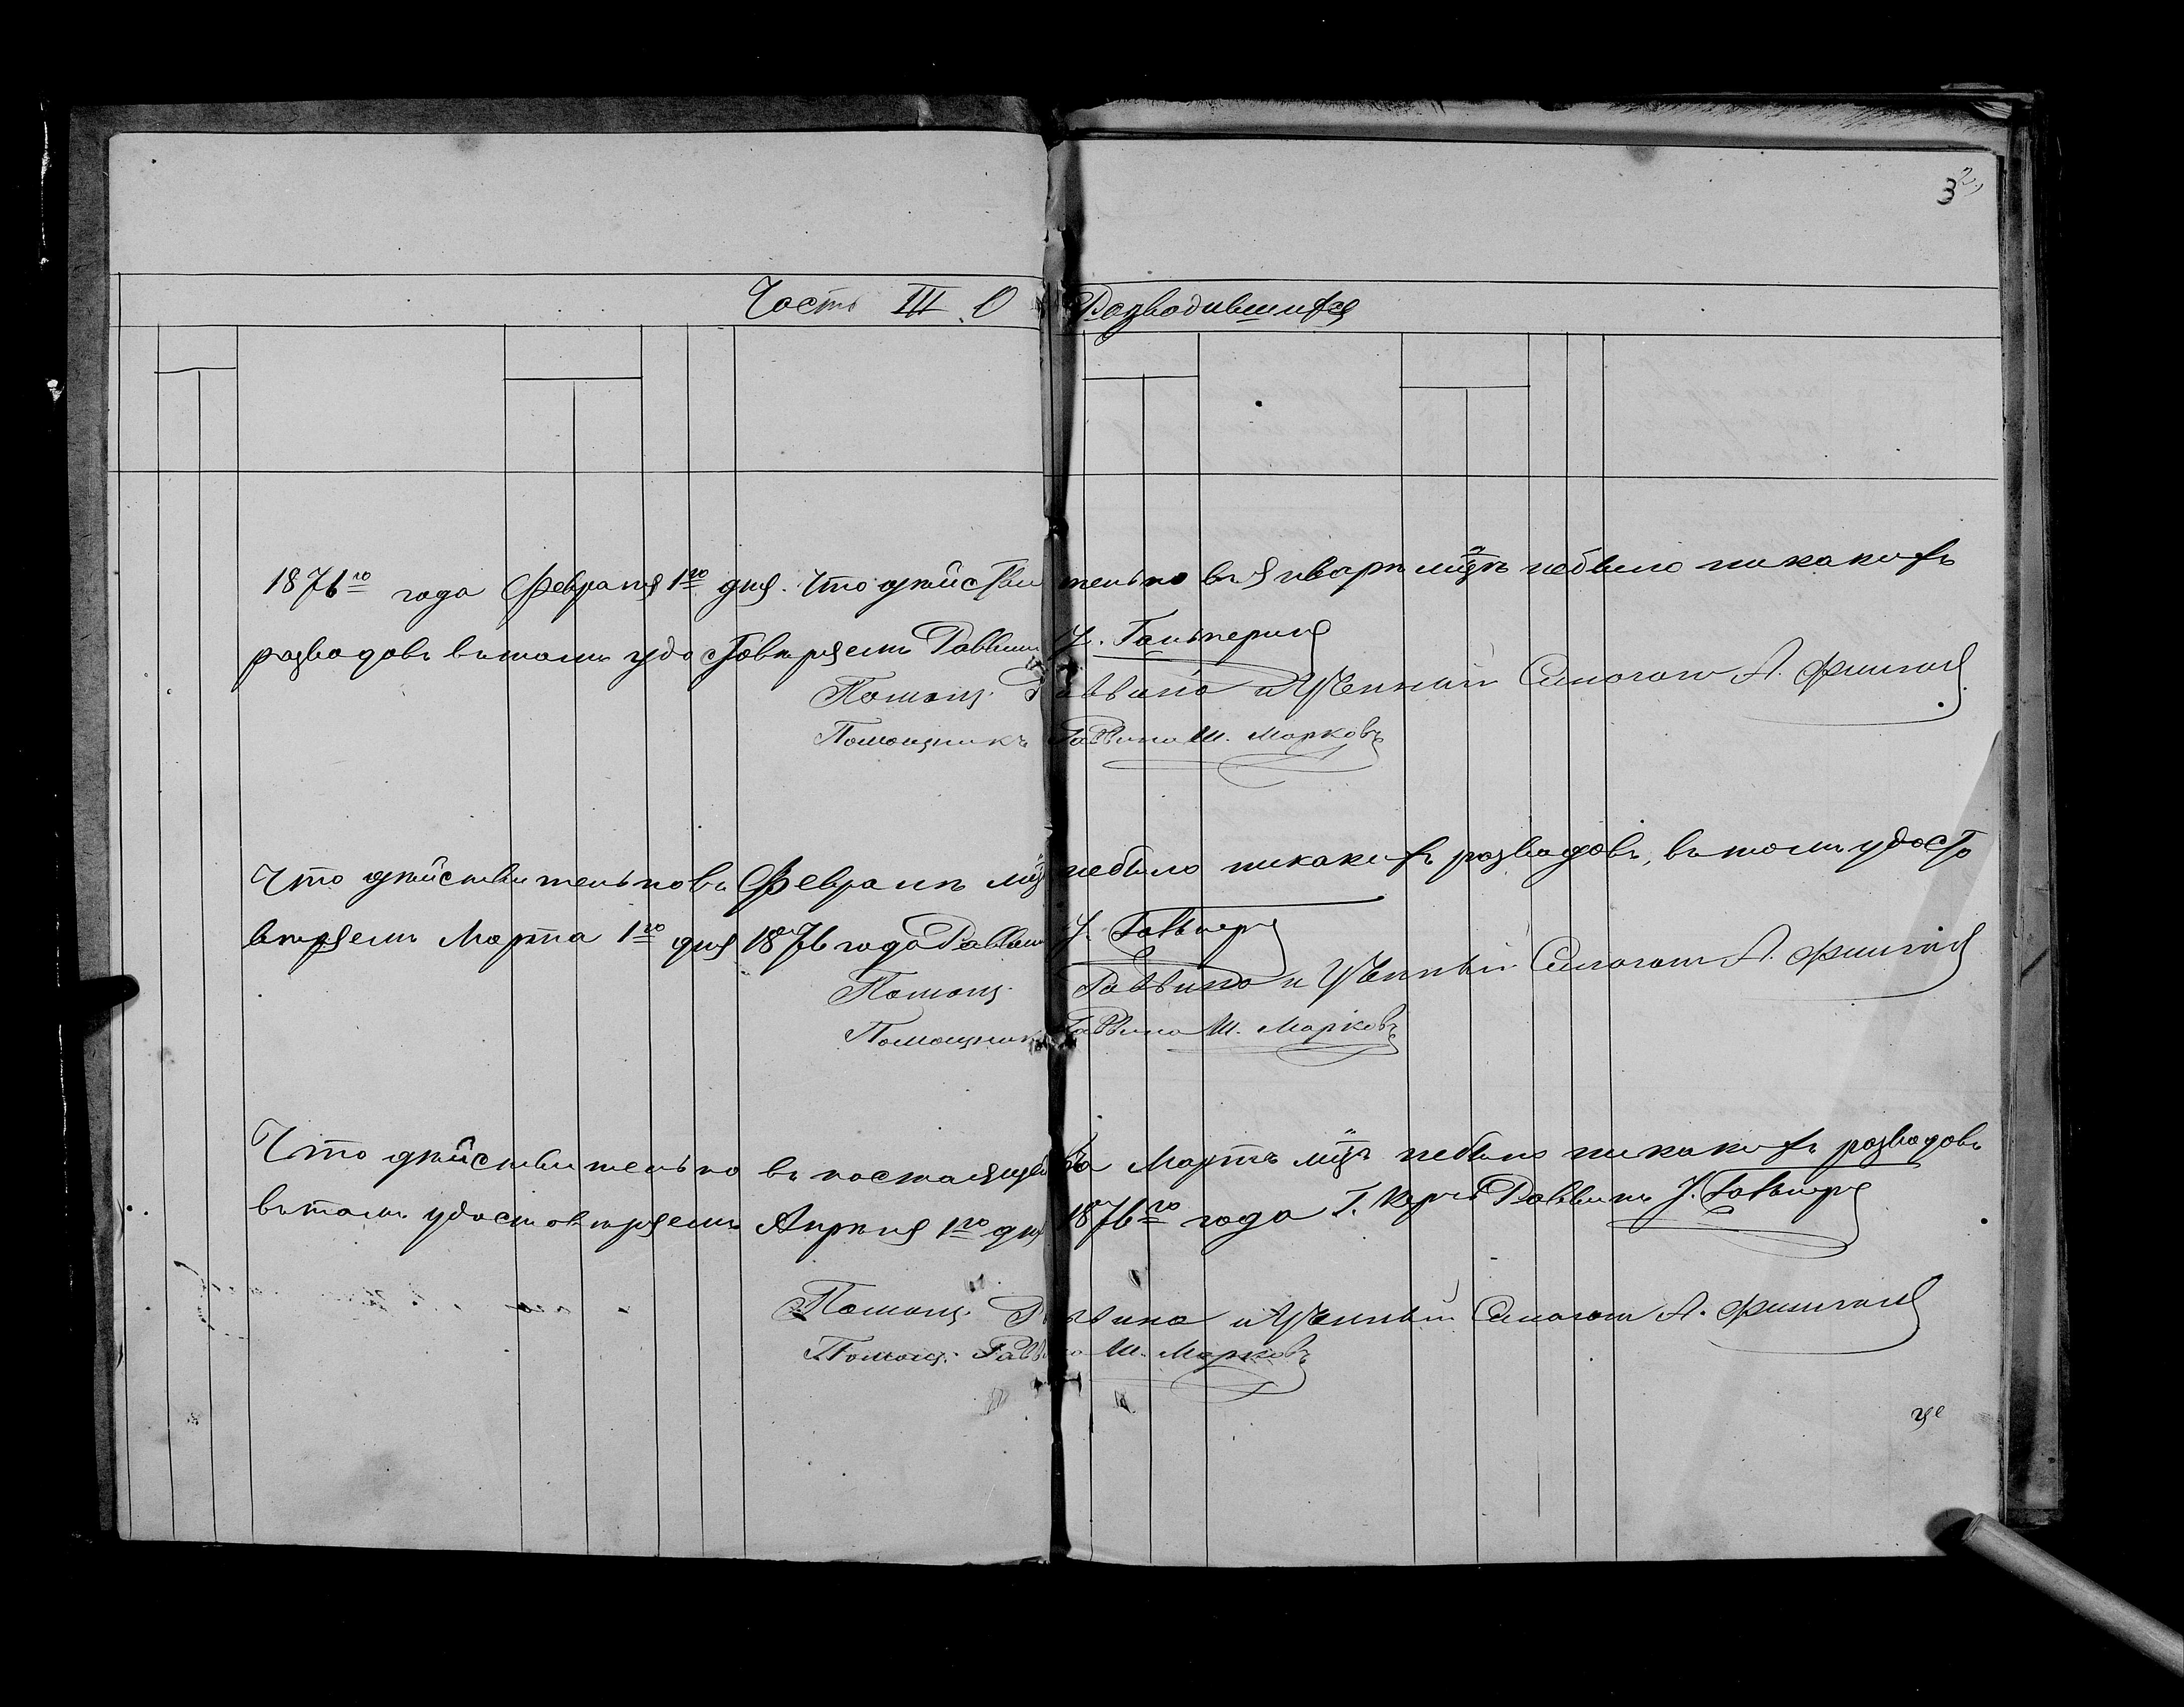 3 2,
Часть III. О Разводившихся
1876го года Февраля 1го дня. Что действительно въ Январѣ мцѣ небыло никакихъ
разводовъ въ томъ удостовѣряемъ Раввинъ Гальперинъ
Помощ. Раввина и Ученный
Помощникъ Раввина Ш. Марковъ
Что дѣйствительно въ Февралѣ мцѣ небыло никакихъ разводовъ, въ томъ удосто
вѣряемъ Марта 1го дня 1876 года Раввинъ
Помощ. Раввина и Ученный
Помощникъ Раввина Ш. Марковъ
Что дѣйствительно въ настоящемъ Мартѣ мцѣ небыло никакихъ разводовъ
въ томъ удостовѣряемъ Апрѣля 1го дня 1876го года Г. Керчь Раввинъ
Помощ. Раввина и Ученный
Помощ. Раввина Ш. Марковъ